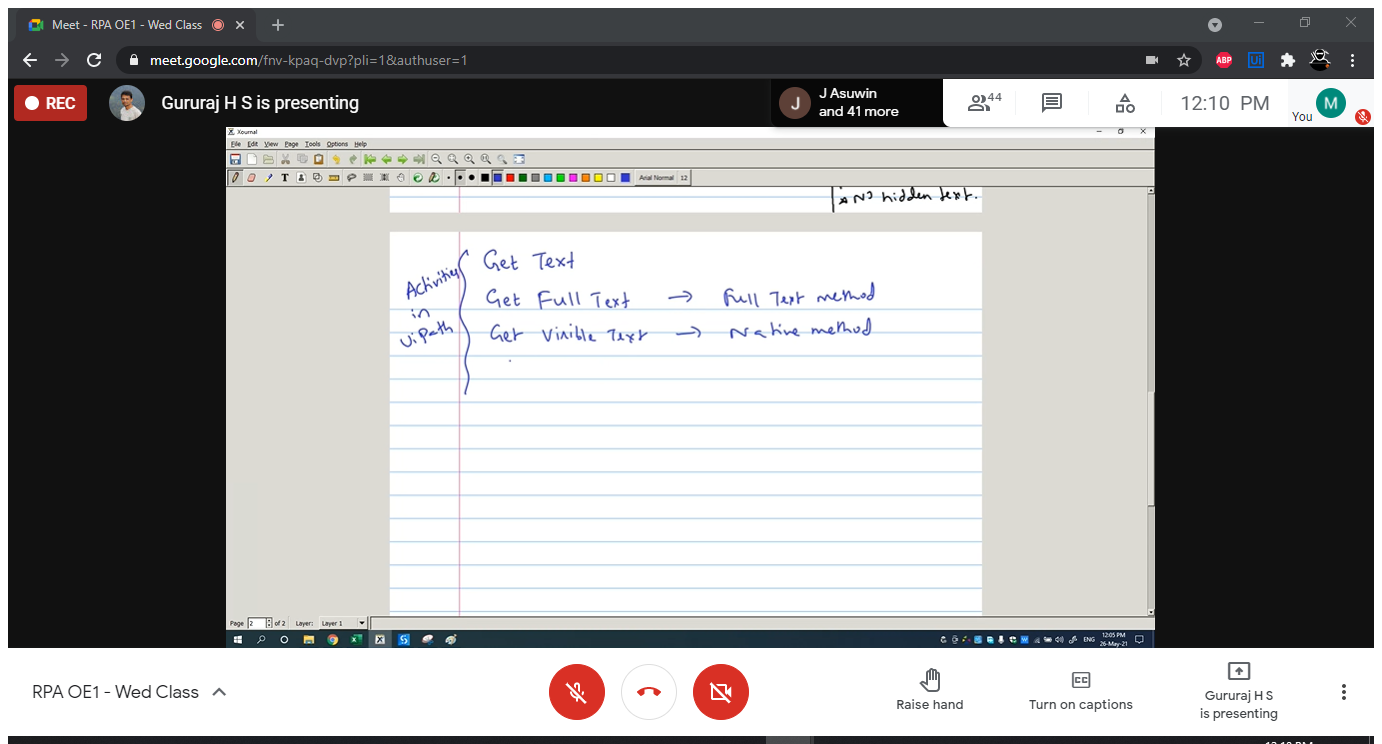 Meet - RPA OE1 - Wed Class
meet.google.com/fnv-kpaq-dvp?pli=1&authuser=1
ABP
REC
Gururaj H S is presenting
J
J Asuwin
and 41 more
44
12:10 PM
You
M
Xournal
File Edit View Page Tools Options Help
T
Arial Normal 12
* No hidden text.
Activities
in
UiPath
Get Text
Get Full Text → Full Text method
Get Visible Text → Native method
Page 2 of 2 Layer: Layer 1
ENG
12:05 PM
26-May-21
RPA OE1 - Wed Class
Raise hand
CC
Turn on captions
Gururaj H S
is presenting